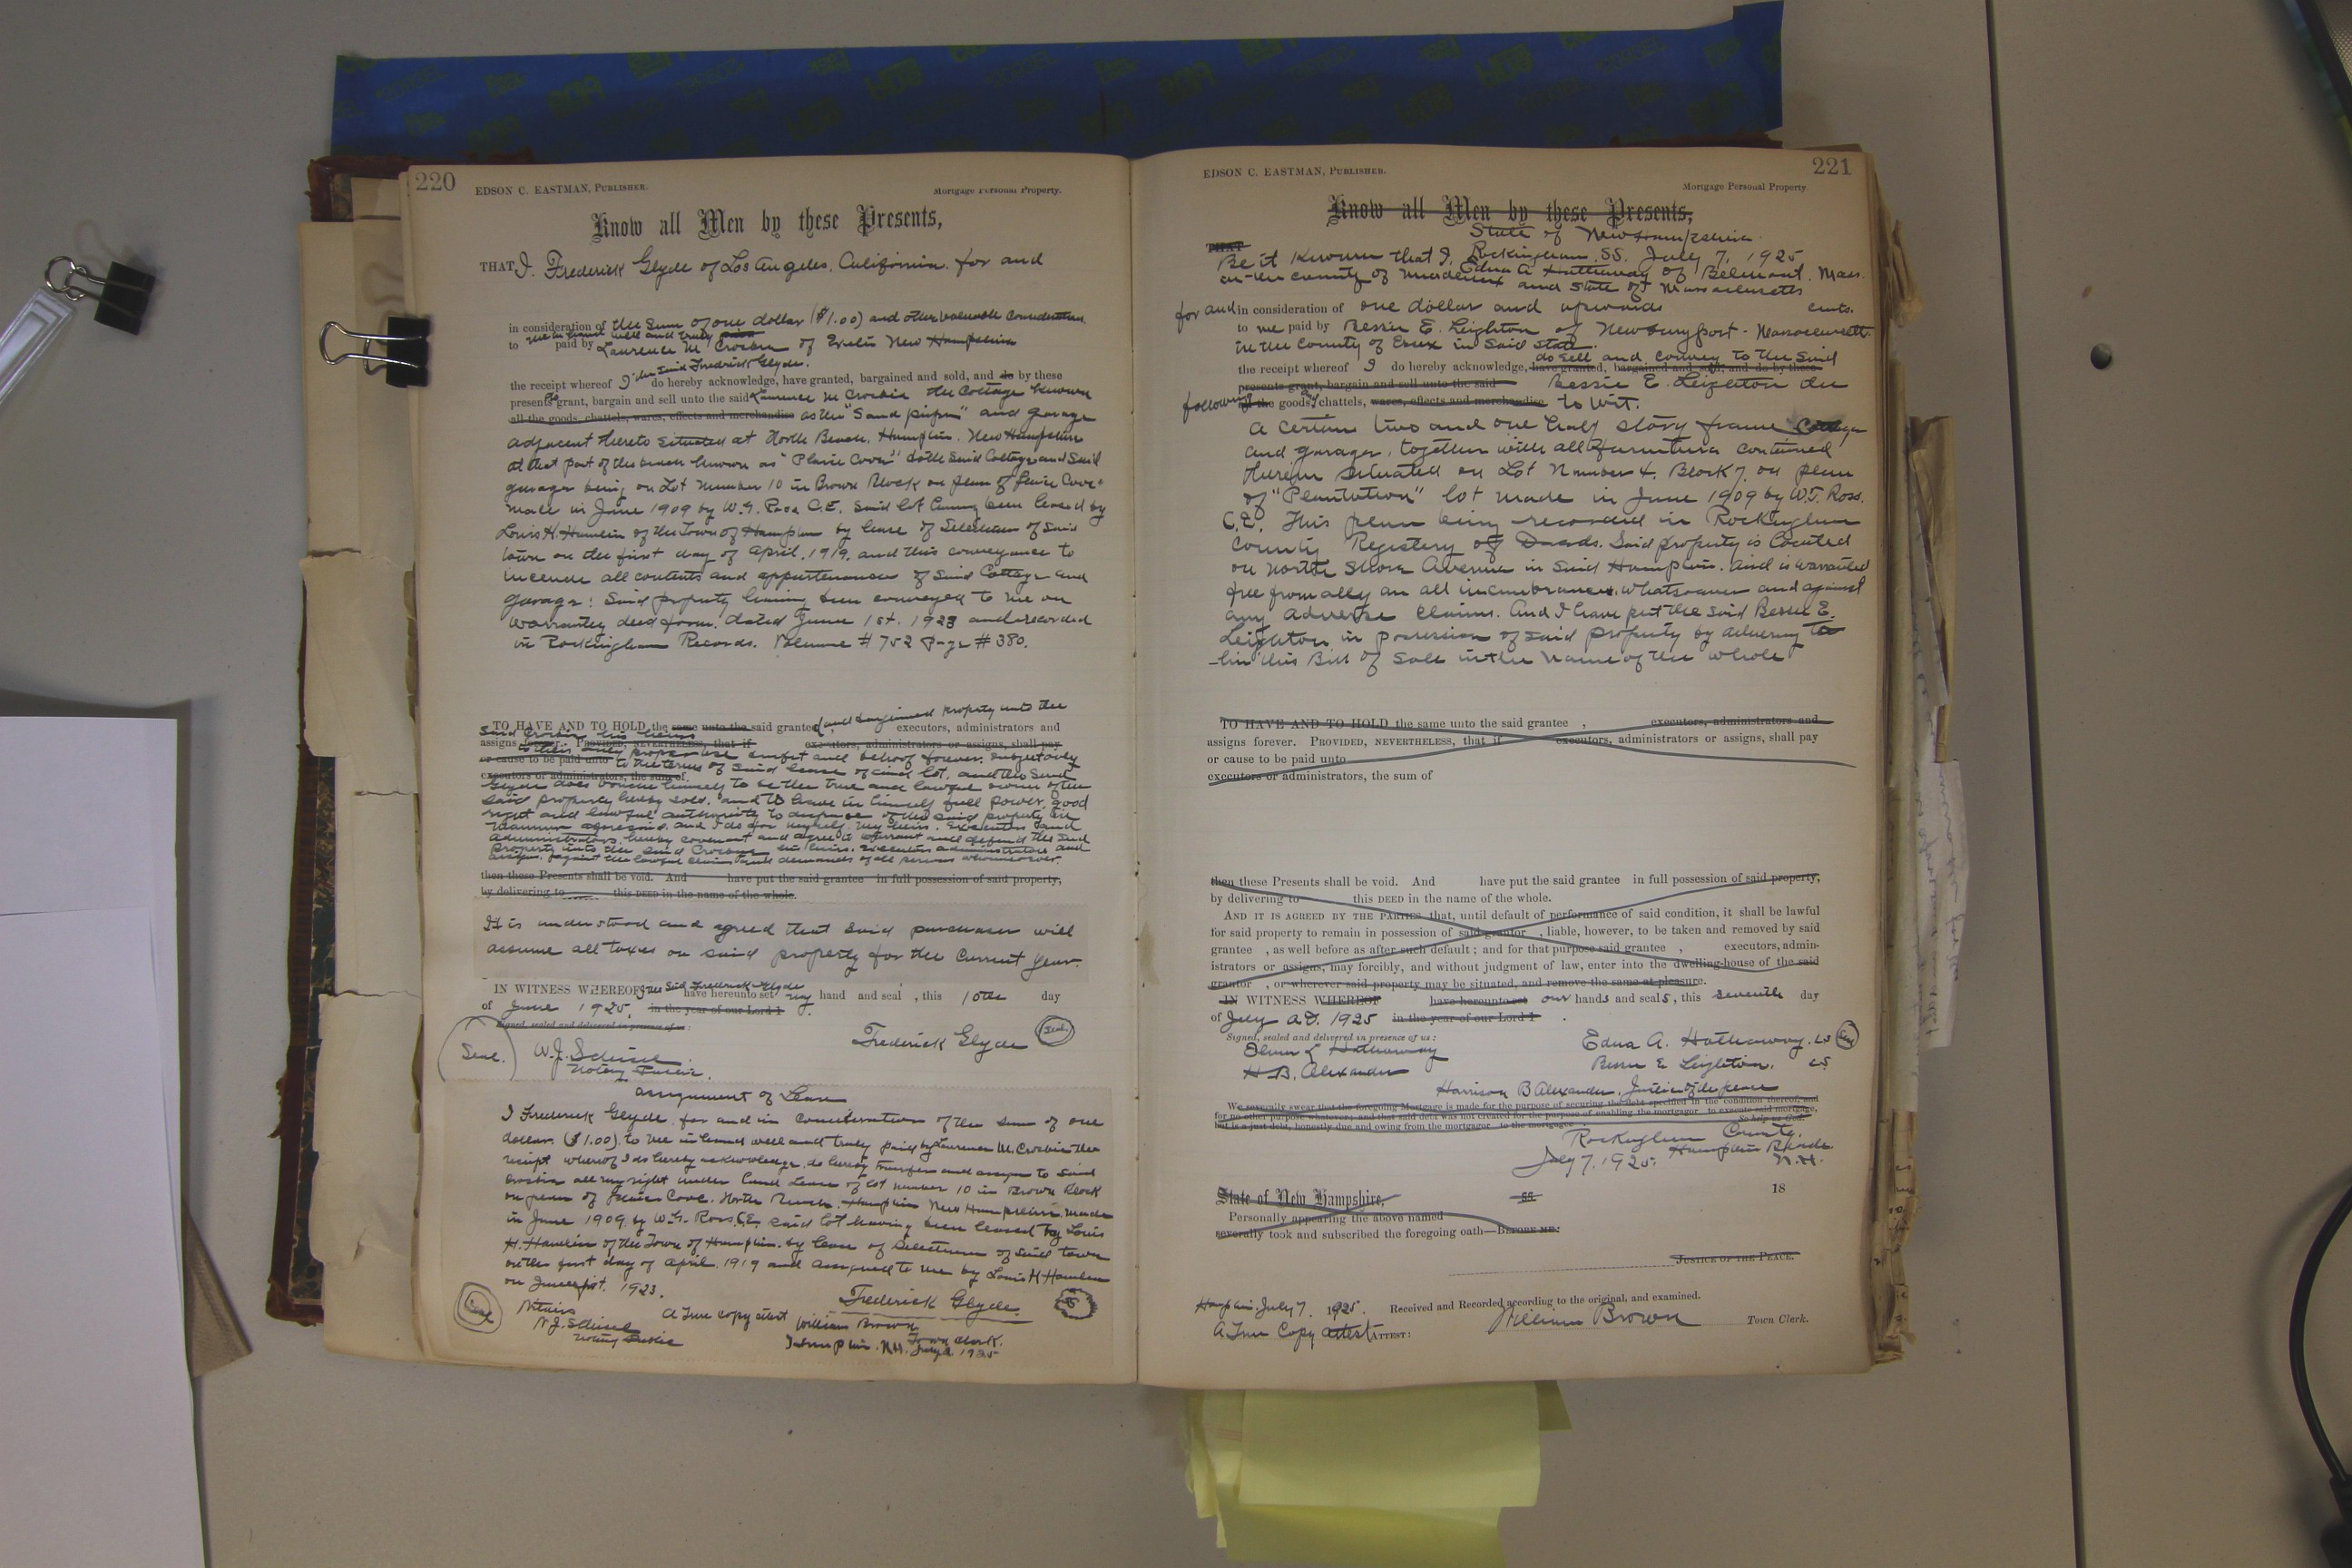 220
EDSON C. EASTMAN, PUBLISHER.
Mortgage Personal Property.
Know all Men by these Presents,
THAT I, Frederick Glyde of Los Angeles, California. for and
in consideration of the sum of one dollar ($1.00) and other valuable consideration.
to me in hand well and truly paid
paid by Laurence M Crosbie of Exeter New Hampshire
the receipt whereof I the said Frederick Glyde. do hereby acknowledge, have granted, bargained and sold, and do by these
presents grant, bargain and sell unto the said Laurence M Crosbie the Cottage known
all the goods, chattels, wares, effects and merchandise as the "Sand piper" and garage
adjacent thereto situated at North Beach, Hampton. New Hampshire
at that part of the beach known as "Plaice Cove" both said Cottage and said
garage being on Lot number 10 in Brown Block on plan of Plaice Cove
made in June 1909 by W.T. Ross C.E. said lot having been leased by
Louis H. Hamlin of the Town of Hampton by lease of Selectmen of said
town on the first day of April, 1919, and this conveyance to
include all contents and appurtenances of said Cottage and
garage: Said property having been conveyed to me on
warranty deed form. dated June 1st. 1923 and recorded
in Rockingham Records. Volume # 752 Page # 380.
TO HAVE AND TO HOLD the same unto the said granted and bargained property unto the executors, administrators and
said Crosbie his heirs
assigns forever. PROVIDED, NEVERTHELESS, that if executors, administrators or assigns, shall pay
to their only proper use benefit and behoof forever. subject only
or cause to be paid unto to the terms of said lease of said lot, and the said
executors or administrators, the sum of
Glyde does vouche himself to be the true and lawful owner of the
said property hereby sold. and to have in himself full power, good
right and lawful authority to dispose of the said property in
manner aforesaid. and I do for myself. my heirs. Executors and
administrators. hereby covenant and agree to warrant and defend the said
property unto the said Crosbie his heirs. executors administrators and
assigns. against the lawful claims and demands of all persons whomsoever.
then these Presents shall be void. And have put the said grantee in full possession of said property,
by delivering to this DEED in the name of the whole.
It is understood and agreed that said purchaser will
assume all taxes on said property for the Current year.
IN WITNESS WHEREOF I the said Frederick Glyde have hereunto set my hand and seal, this 10th day
of June 1925. in the year of our Lord 1
Signed, sealed and delivered in presence of us:
Frederick Glyde (Seal)
(Seal.) W.J.
Notary Public.
assignment of Lease
I Frederick Glyde, for and in consideration of the sum of one
dollar. ($1.00), to me in hand well and truly paid by Laurence M. Crosbie the
receipt whereof I do hereby acknowledge. do hereby transfer and assign to said
Crosbie all my right under Land Lease of lot number 10 in Brown Block
on plan of Plaice Cove. North Beach. Hampton New Hampshire, made
in June 1909 by W.T. Ross, C.E. said lot having been leased by Louis
H. Hamlin of the Town of Hampton. by lease of Selectmen of said town
on the first day of April, 1919 and assigned to me by Louis H Hamlin
on June first. 1923.
Frederick Glyde.
A True copy attest William Brown
Notary Public
Town Clerk.
Hampton. N.H. July 2 1925
221
EDSON C. EASTMAN, PUBLISHER.
Mortgage Personal Property
Know all Men by these Presents,
State of New Hampshire
THAT
Rockingham, SS. July 7, 1925
Be it Known that I, Edna A Hathaway of Belmont. Mass.
in the county of Middlesex and State of Massachusetts
for and in consideration of one dollar and upwards cents.
to me paid by Bessie E. Leighton of Newburyport - Massachusetts
in the County of Essex in said State
the receipt whereof I do hereby acknowledge, have granted, bargained and sold, and do by these do sell and convey to the said
presents grant, bargain and sell unto the said Bessie E. Leighton the
following all the goods, chattels, wares, effects and merchandise to wit.
a certain two and one half story frame Cottage
and garage, together with all furniture contained
therein situated on Lot Number 4. Block 7. on plan
of "Plantation" lot made in June 1909 by W.T. Ross.
C.E. This plan being recorded in Rockingham
County Registery of Deeds. Said property is located
on North Shore Avenue in said Hampton. and is warranted
free from all incumbrances whatsoever and against
any adverse claims. And I have put the said Bessie E.
Leighton in possession of said property by delivering to
him this Bill of Sale in the name of the whole
TO HAVE AND TO HOLD the same unto the said grantee , executors, administrators and
assigns forever. PROVIDED, NEVERTHELESS, that if executors, administrators or assigns, shall pay
or cause to be paid unto
executors or administrators, the sum of
then these Presents shall be void. And have put the said grantee in full possession of said property,
by delivering to this DEED in the name of the whole.
AND IT IS AGREED BY THE PARTIES that, until default of performance of said condition, it shall be lawful
for said property to remain in possession of said grantor , liable, however, to be taken and removed by said
grantee , as well before as after such default ; and for that purpose said grantee , executors, admin-
istrators or assigns, may forcibly, and without judgment of law, enter into the dwelling-house of the said
grantor , or wherever said property may be situated, and remove the same at pleasure.
IN WITNESS WHEREOF have hereunto set our hands and seals, this seventh day
of July A.D. 1925 in the year of our Lord 1 .
Signed, sealed and delivered in presence of us:
Hathaway
H. B. Alexander
Edna A. Hathaway. LS (Seal)
Bessie E Leighton. LS
Harrison B Alexander. Justice of the peace
We severally swear that the foregoing Mortgage is made for the purpose of securing the debt specified in the condition thereof, and
for no other purpose whatever; and that said debt was not created for the purpose of enabling the mortgagor to execute said mortgage,
but is a just debt, honestly due and owing from the mortgagor to the mortgagee. So help us God.
Rockingham County.
July 7. 1925. Hampton Beach
N.H.
State of New Hampshire, SS. 18
Personally appearing the above named
severally took and subscribed the foregoing oath—BEFORE ME:
JUSTICE OF THE PEACE.
Hampton. July 7. 1925. Received and Recorded according to the original, and examined.
A True Copy attest ATTEST: William Brown Town Clerk.